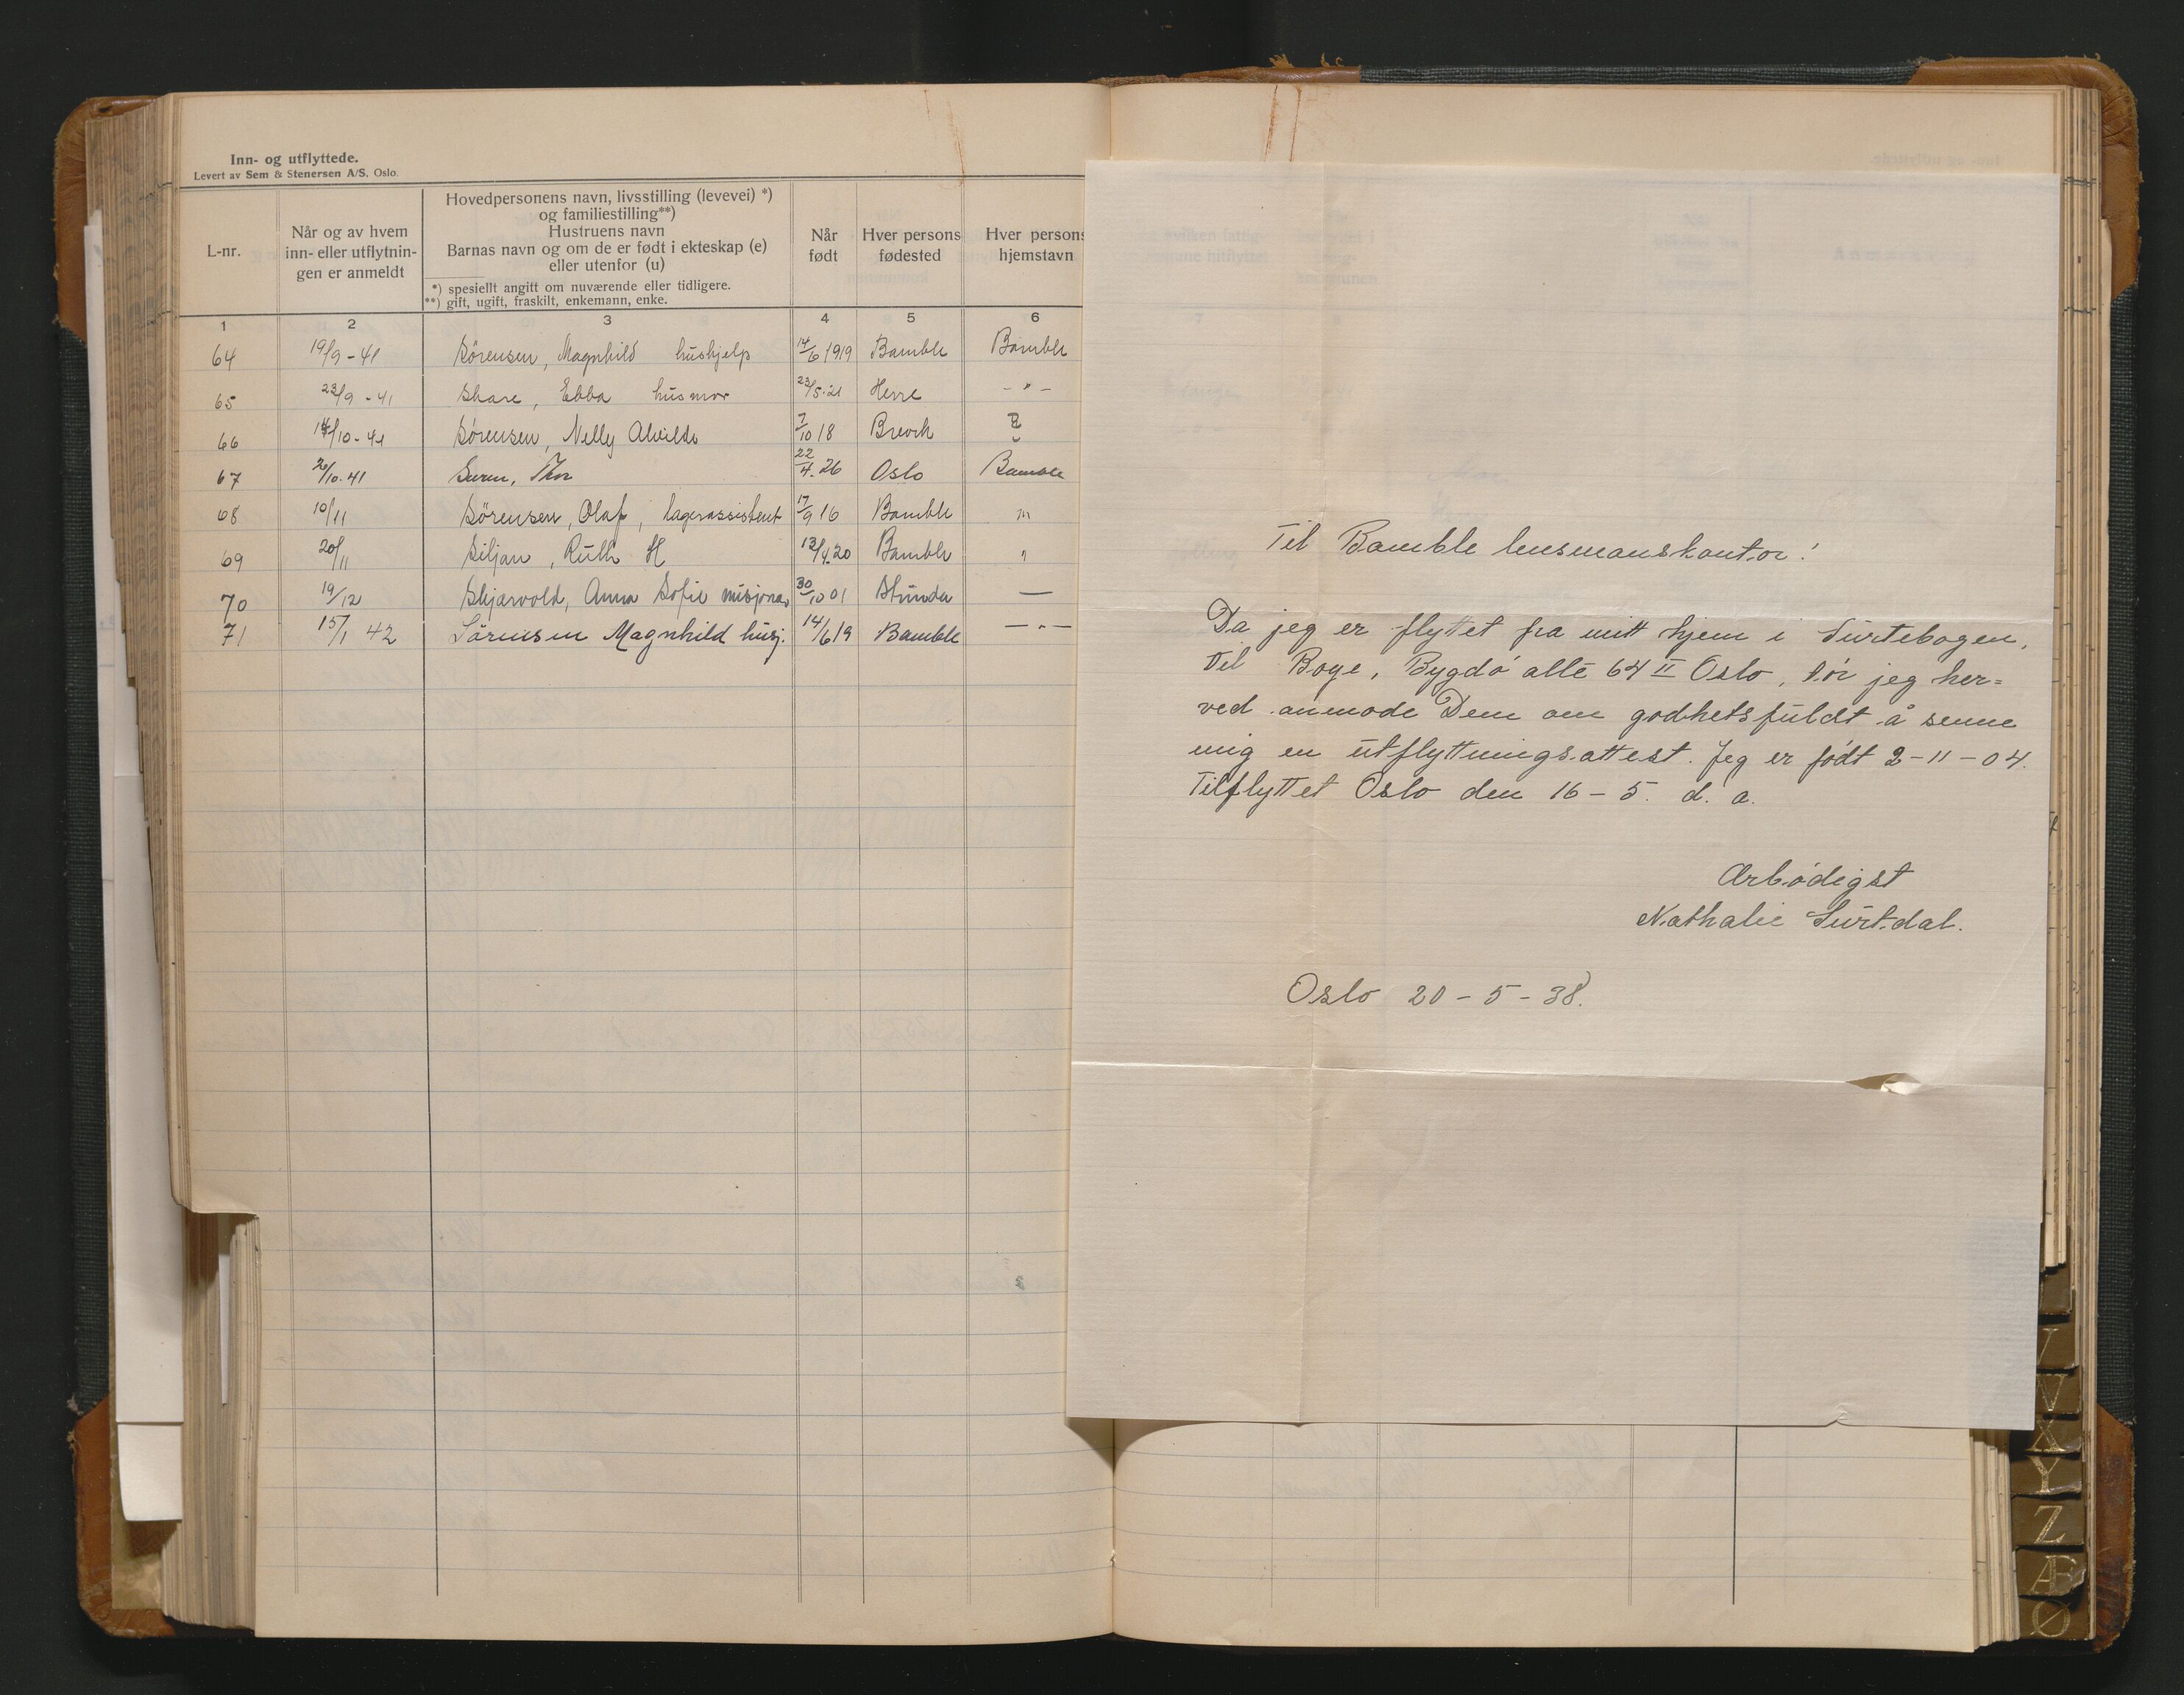 Inn- og utflyttede.
Levert av Sem & Stenersen A/S. Oslo.
L-nr.
Når og av hvem
inn- eller utflytnin-
gen er anmeldt
Hovedpersonens navn, livsstilling (levevei) *)
og familiestilling**)
Hustruens navn
Barnas navn og om de er født i ekteskap (e)
eller utenfor (u)
*) spesiellt angitt om nuværende eller tidligere.
**) gift, ugift, fraskilt, enkemann, enke.
Når
født
Hver persons
fødested
Hver persons
hjemstavn
1 2 3 4 5 6
64 19/9-41 Sörensen, Magnhild hushjelp 14/6 1919 Bamble Bamble
65 23/9-41 Skare, Ebba husmor 23/5.21 Herre - " -
66 14/10-41 Sørensen, Nelly Alvilde 7/10 18 Brevik
67 20/10.41 Thor 22/4.26 Oslo Bamble
68 10/11 Sörensen, Olaf, lagerassistent 17/9 16 Bamble "
69 20/11 Siljan, Ruth H 13/4.20 Bamble "
70 19/12 Skjærvold, Anna Sofie misjonær 30/10 01 —
71 15/1 42 Sörensen Magnhild husj. 14/6 19 Bamble — " —
Til Bamble lensmanskontor!
Da jeg er flyttet fra mitt hjem i Surtebogen,
til Boye, Bygdö allé 64 II Oslo, tör jeg her=
ved anmode Dem om godhetsfuldt å senne
mig en utflyttningsattest. Jeg er født 2-11-04.
Tilflyttet Oslo den 16-5. d. a.
Ærbödigst
Nathalie Surtdal.
Oslo 20-5-38.
V
V
X
Y
Z
Æ
Ø